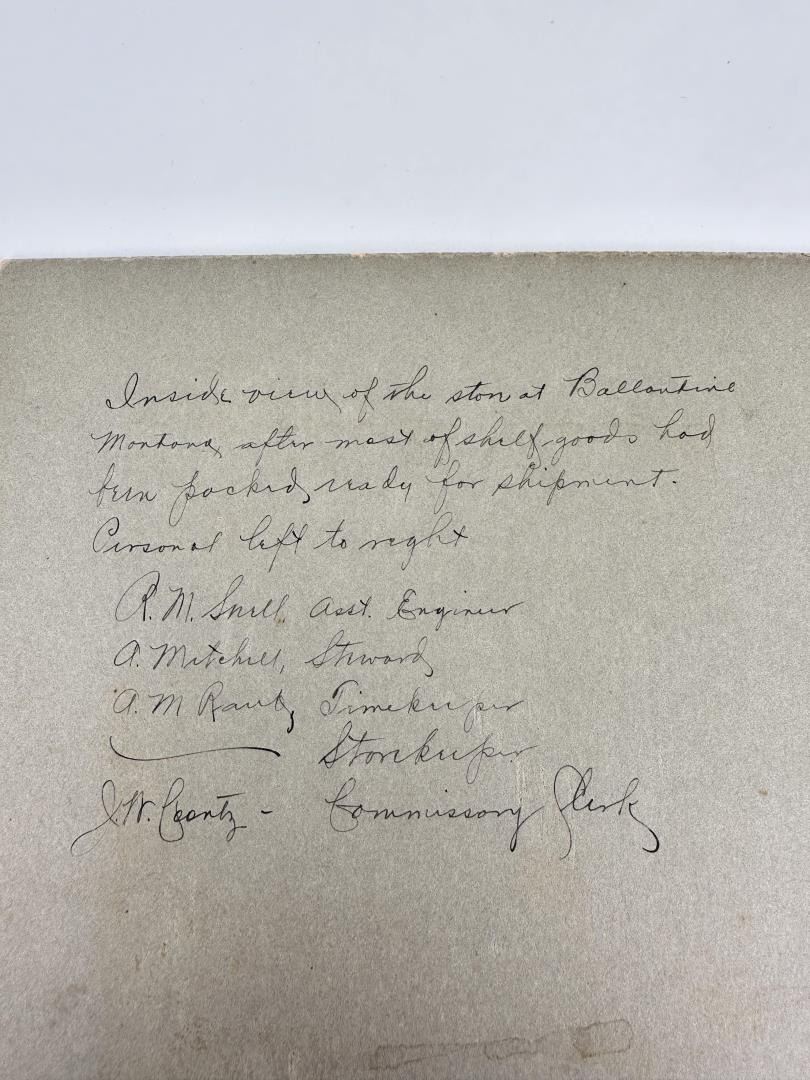 Inside view of the store at Ballantine
Montana, after most of shelf goods had
been packed, ready for shipment.
Personal left to right
R. M. Snell Asst. Engineer
A. Mitchell, Steward
A. M , Timekeeper
Storekeeper
J. W. - Commissary Clerk